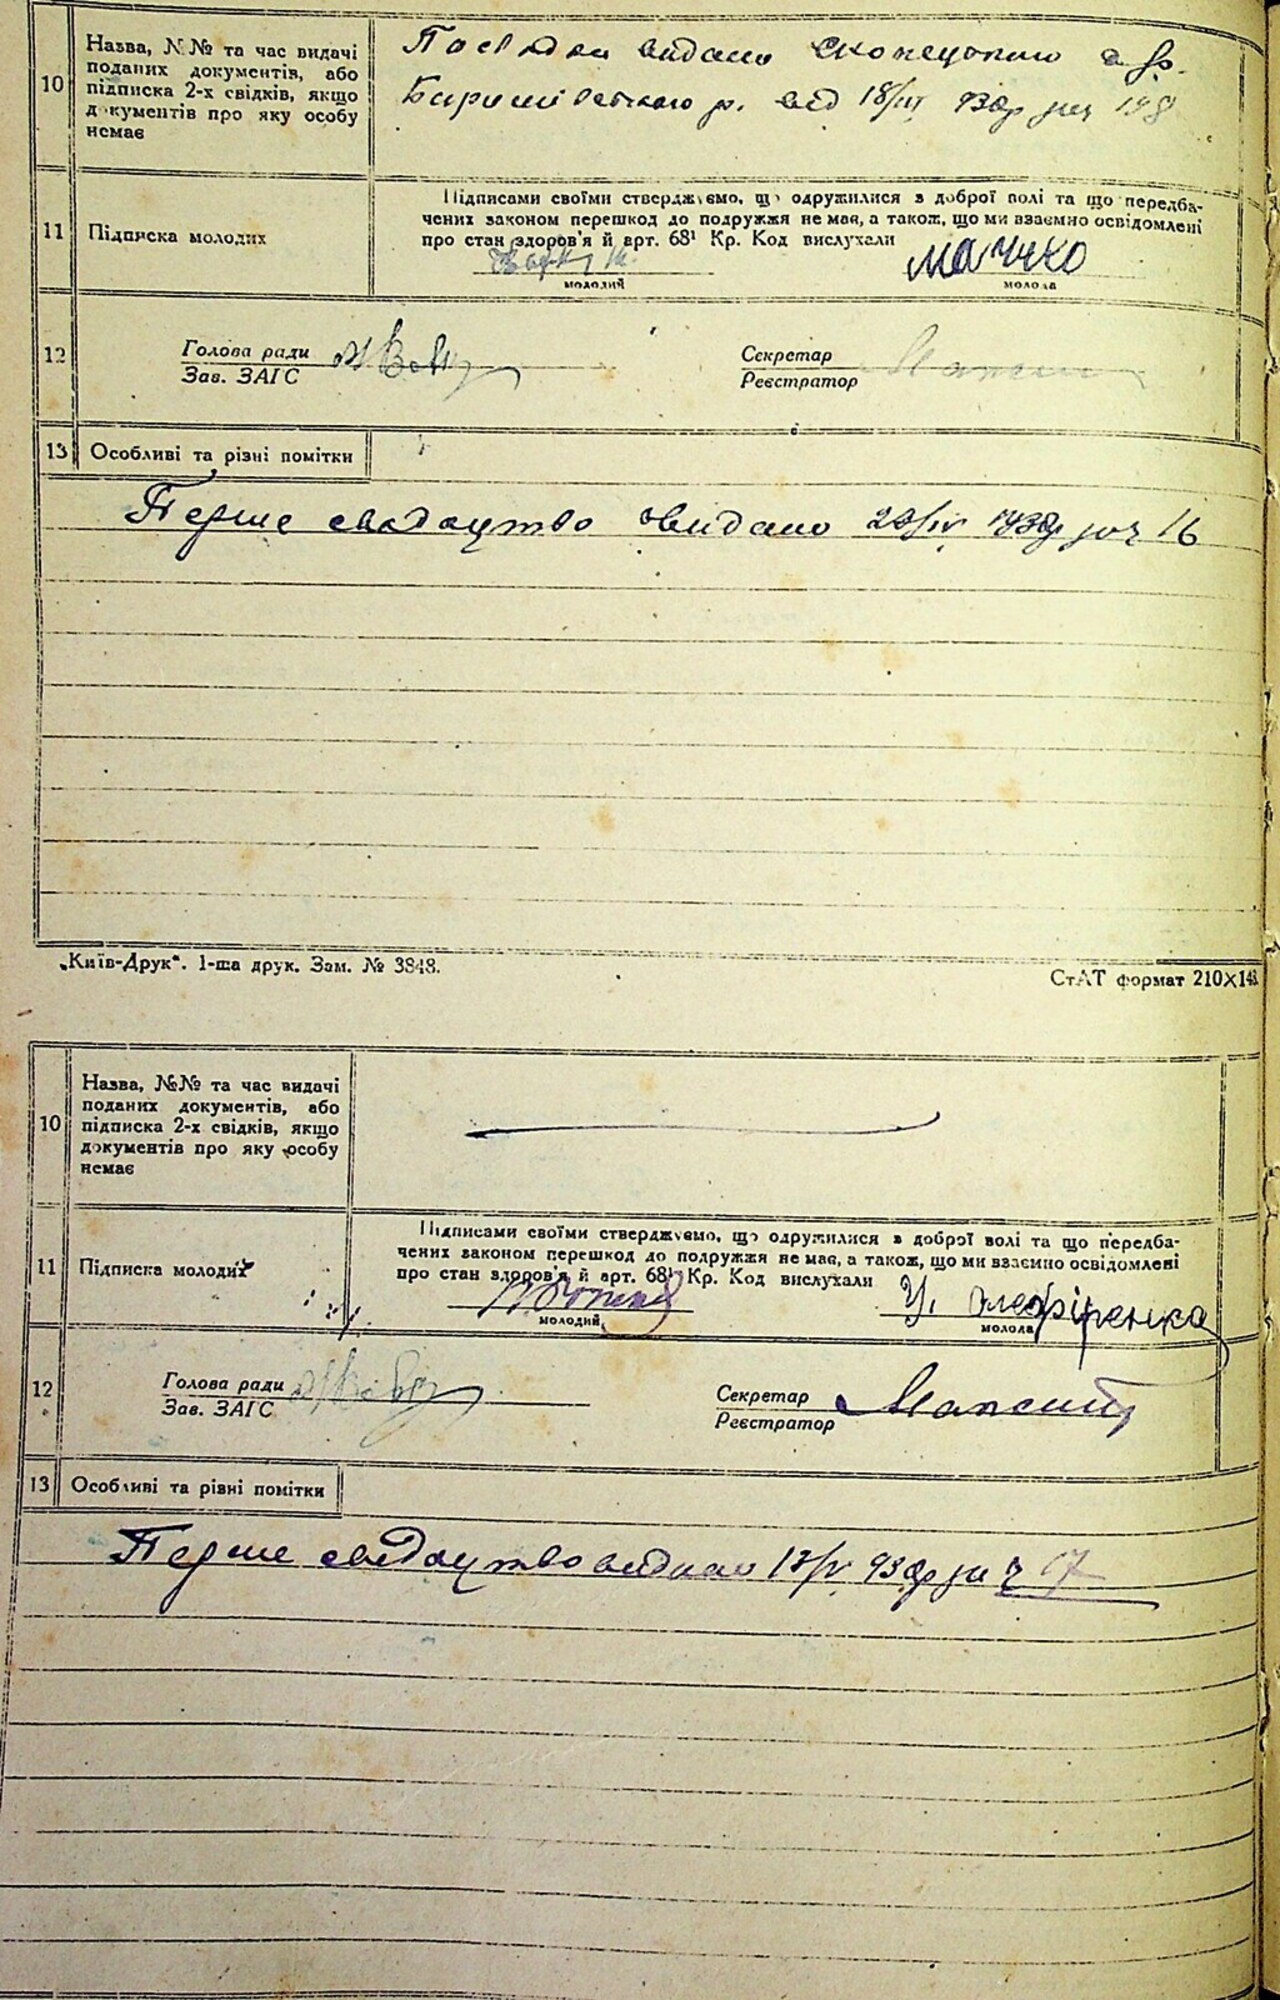 10
Назва, №№ та час видачі
поданих документів, або
підписка 2-х свідків, якщо
документів про яку особу
немає
видано
від 18/III 93
11
Підписка молодих
Підписами своїми стверджуємо, що одружилися з доброї волі та що передба-
чених законом перешкод до подружжя не має, а також, що ми взаємно освідомлені
про стан здоров'я й арт. 68¹ Кр. Код вислухали
молодий
мачуко
молода
12
Голова ради
Зав. ЗАГС
Секретар
Реєстратор
13
Особливі та різні помітки
Перше свідоцтво видано
16
„Київ-Друк“. 1-ша друк. Зам. № 3848.
СтАТ формат 210×148
10
Назва, №№ та час видачі
поданих документів, або
підписка 2-х свідків, якщо
документів про яку особу
немає
11
Підписка молодих
Підписами своїми стверджуємо, що одружилися з доброї волі та що передба-
чених законом перешкод до подружжя не має, а також, що ми взаємно освідомлені
про стан здоров'я й арт. 68¹ Кр. Код вислухали
молодий
молода
12
Голова ради
Зав. ЗАГС
Секретар
Реєстратор
13
Особливі та різні помітки
Перше свідоцтво видано
17